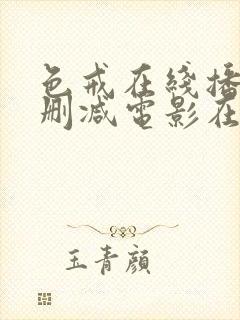 色戒在线播
删减电影在
玉青颜